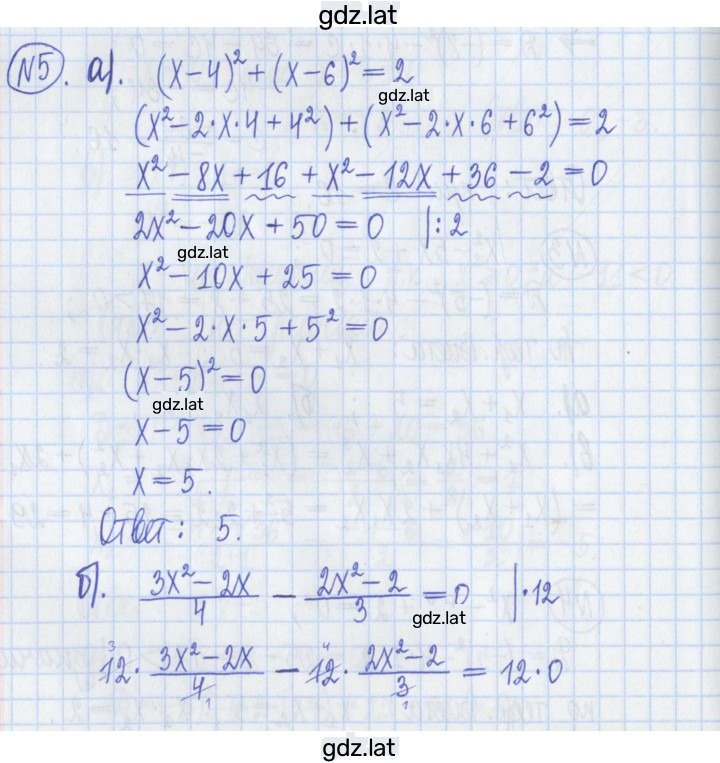 gdz.lat
№5. а). (x−4)²+(x−6)²=2
gdz.lat
(x²−2·x·4+4²)+(x²−2·x·6+6²)=2
x²−8x+16+x²−12x+36−2=0
2x²−20x+50=0 |:2
gdz.lat
x²−10x+25=0
x²−2·x·5+5²=0
(x−5)²=0
gdz.lat
x−5=0
x=5.
Ответ: 5.
б). (3x²−2x)/4 − (2x²−2)/3 = 0 |·12
gdz.lat
3 4
12·(3x²−2x)/4 − 12·(2x²−2)/3 = 12·0
1 1
gdz.lat